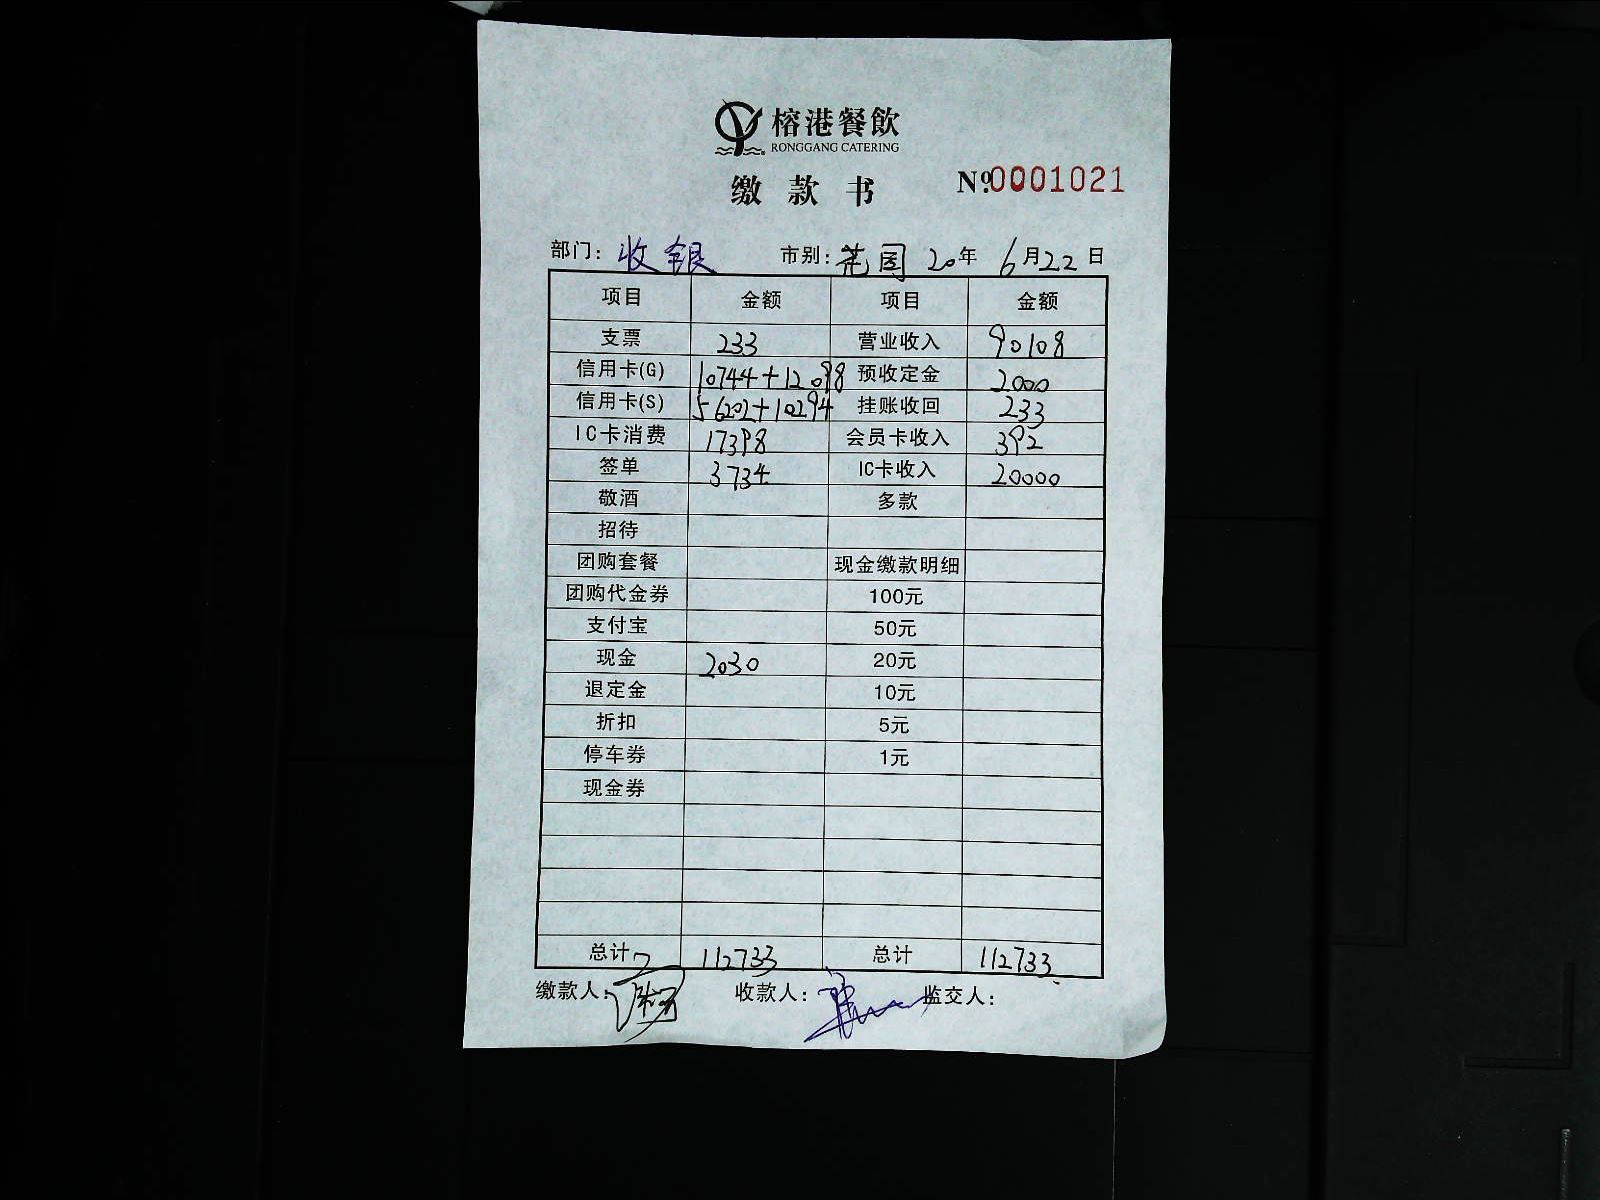 榕港餐飲
RONGGANG CATERING
缴款书 №0001021
部门: 收银 市别: 花园 20年 6月22日
项目 金额 项目 金额
支票 233 营业收入 90108
信用卡(G) 10744+12098 预收定金 2000
信用卡(S) 56202+10294 挂账收回 233
IC卡消费 17398 会员卡收入 392
签单 3734 IC卡收入 20000
敬酒 多款
招待
团购套餐 现金缴款明细
团购代金券 100元
支付宝 50元
现金 2030 20元
退定金 10元
折扣 5元
停车券 1元
现金券
总计 112733 总计 112733
缴款人: 收款人: 监交人: